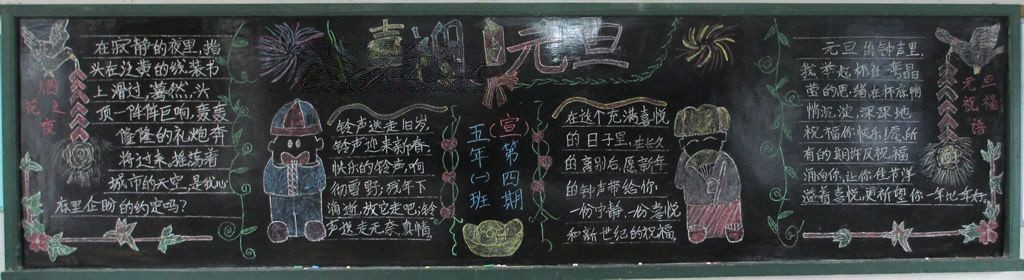 喜迎元旦
烟花之夜
在寂静的夜里,指
头在泛黄的线装书
上滑过,蓦然,头
顶一阵阵巨响,轰轰
隆隆的礼炮奔
将过来,摇荡着
城市的天空,是我心
底里企盼的约定吗?
铃声送走旧岁,
铃声迎来新春,
快乐的铃声,响
彻雪野;残年下
消逝,放它走吧;铃
声送走无奈,真情,
五年(一)班
(宣)第四期
在这个充满喜悦
的日子里,在长久
的离别后,愿新年
的钟声带给你,
一份宁静,一份喜悦
和新世纪的祝福,
元旦的钟声里,
我举起杯,任
莹的思绪,在杯底悄
悄沉淀,深深地
祝福你快乐!愿所
有的期许及祝福
涌向你,让你佳节洋
溢着喜悦,更祈望你一年比一年好,
元旦祝福语